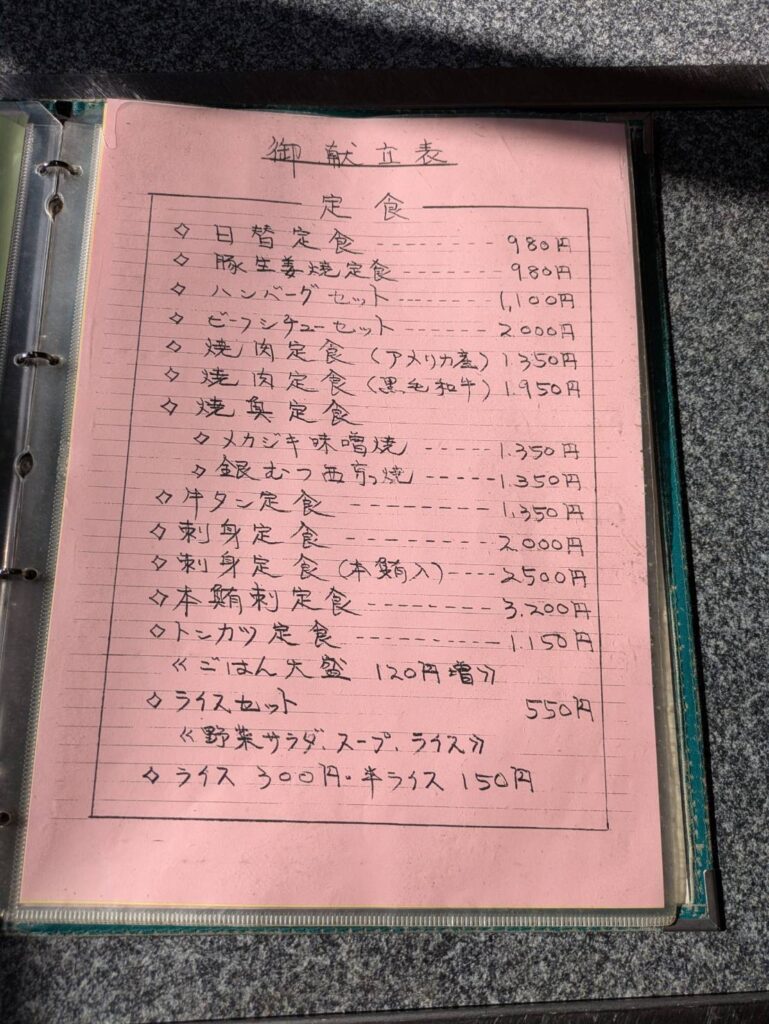 御献立表
定食
◇ 日替定食 ------------ 980円
◇ 豚生姜焼定食 --------- 980円
◇ ハンバーグセット -------- 1,100円
◇ ビーフシチューセット ------- 2.000円
◇ 焼肉定食(アメリカ産) 1.350円
◇ 焼肉定食(黒毛和牛) 1.950円
◇ 焼魚定食
◇ メカジキ味噌焼 ----- 1.350円
◇ 銀むつ西京焼 ----- 1.350円
◇ 牛タン定食 --------- 1.350円
◇ 刺身定食 ---------- 2.000円
◇ 刺身定食(本鮪入)---- 2500円
◇ 本鮪刺定食 -------- 3.200円
◇ トンカツ定食 --------- 1.150円
《ごはん大盛 120円増》
◇ ライスセット 550円
《野菜サラダ、スープ、ライス》
◇ ライス 300円・半ライス 150円